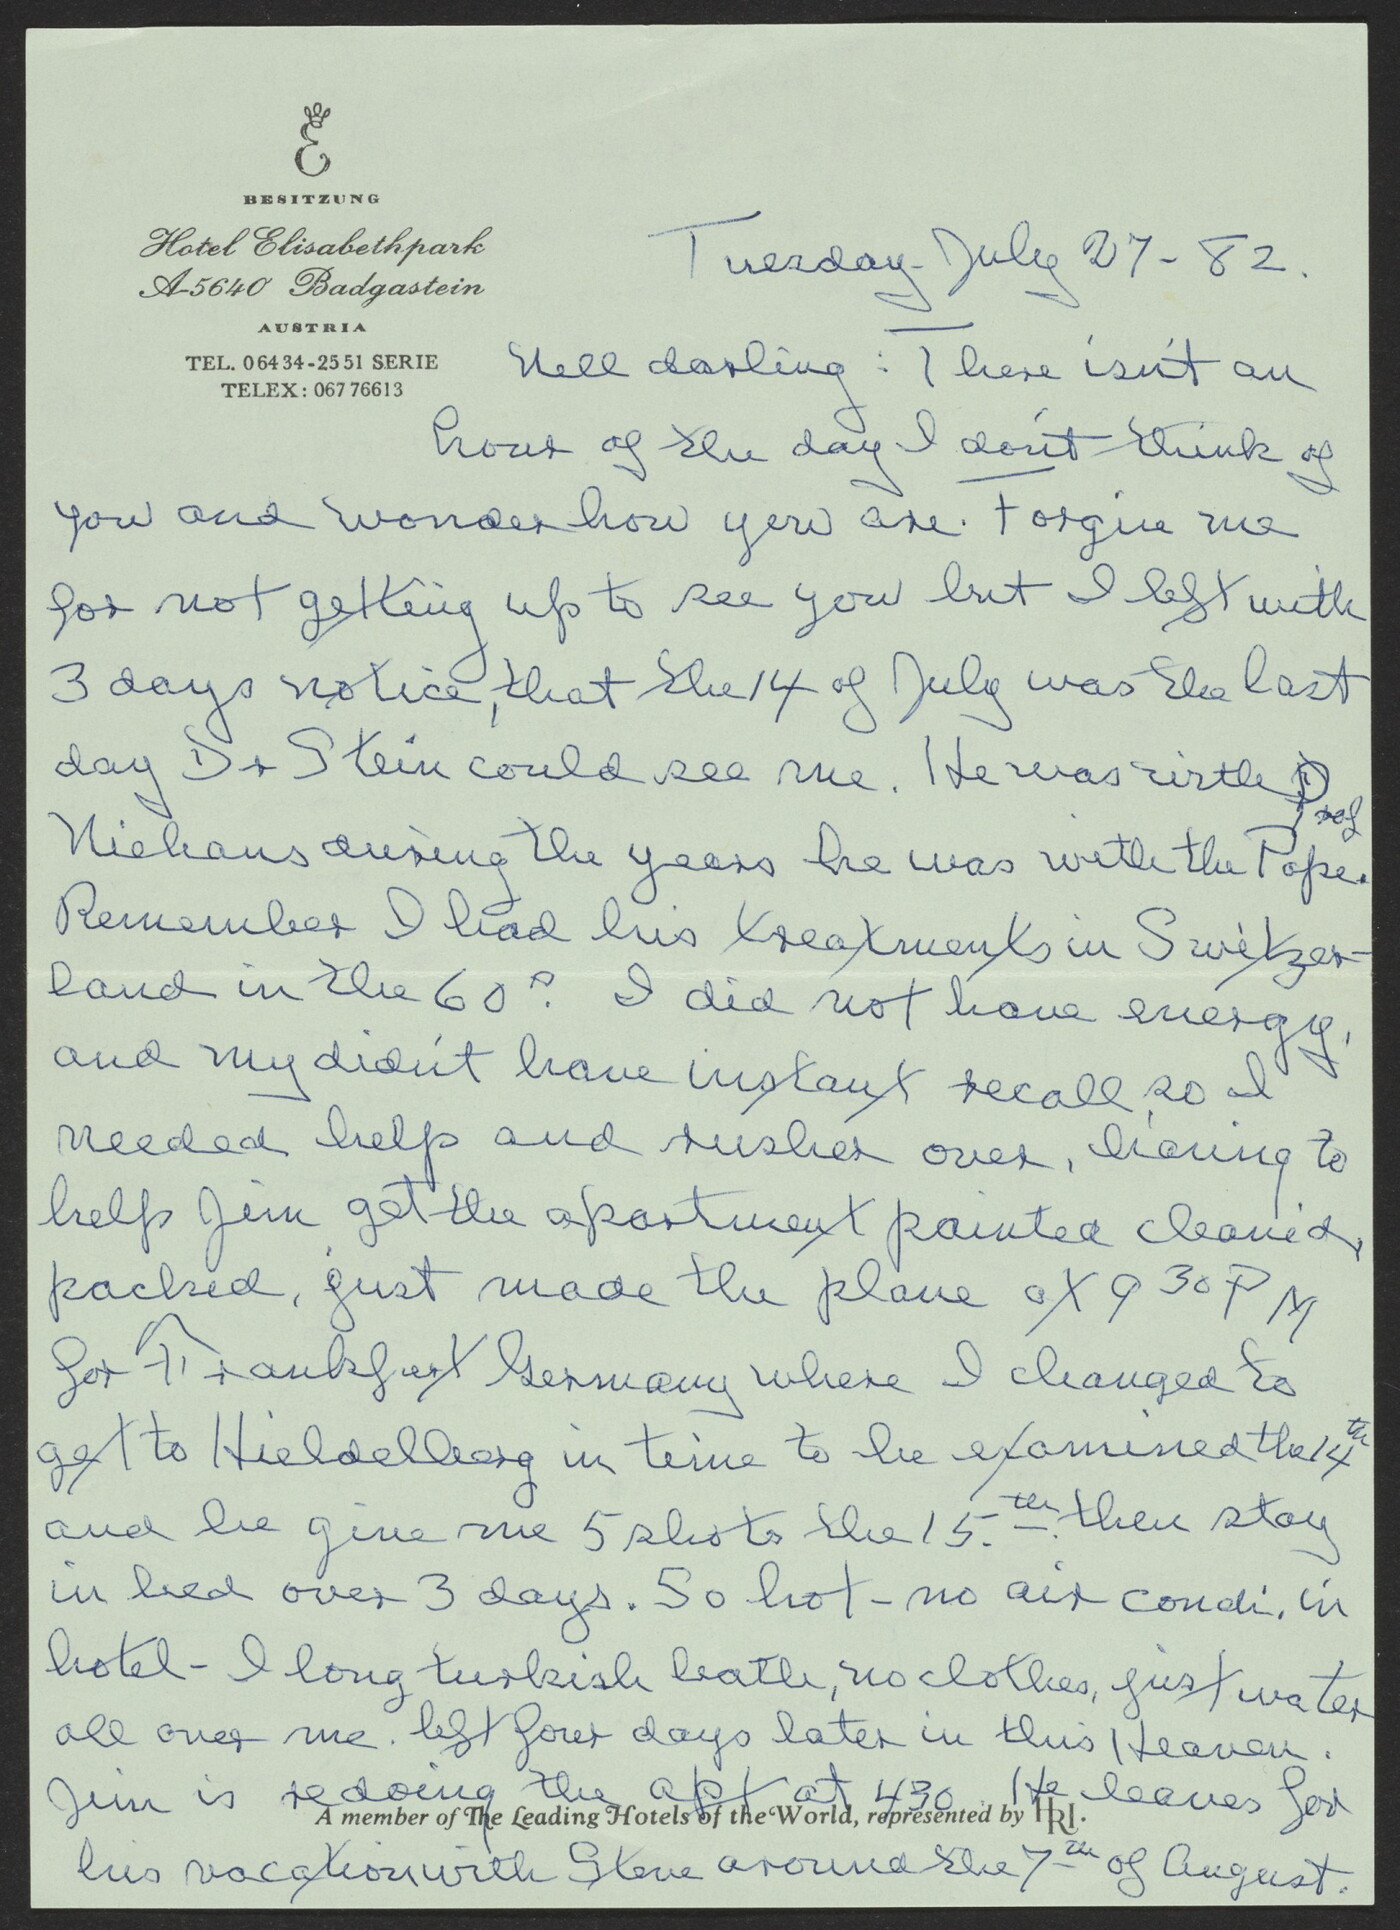 E
BESITZUNG
Hotel Elisabethpark
A-5640 Badgastein
AUSTRIA
TEL. 06434-2551 SERIE
TELEX: 067 76613
Tuesday - July 27 - 82.
Nell darling: There isn't an
hour of the day I don't think of
you and wonder how you are. Forgive me
for not getting up to see you but I left with
3 days notice, that the 14 of July was the last
day Dr Stein could see me. He was with
Prof
Niehans during the years he was with the Pope.
Remember I had his treatments in Switzer-
land in the 60? I did not have energy,
and my didn't have instant recall, so I
needed help and rushed over, having to
help Jim get the apartment painted cleaned,
packed, just made the plane at 9 30 P M
for Frankfurt Germany where I changed to
get to Hieldelberg in time to be examined the 14th
and he give me 5 shots the 15.th then stay
in bed over 3 days. So hot - no air condi. in
hotel - I long turkish bath, no clothes, just water
all over me. left four days later in this Heaven.
Jim is redoing the apt at 430. He leaves for
A member of The Leading Hotels of the World, represented by HRI.
his vacation with Steve around the 7th of August.